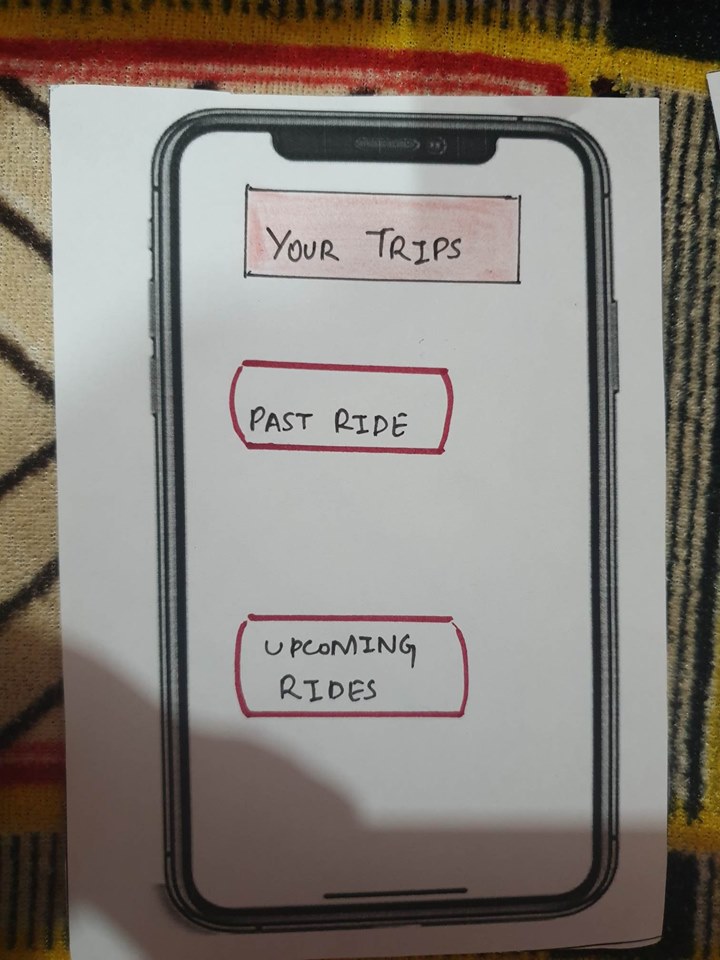 YOUR TRIPS
PAST RIDE
UPCOMING
RIDES